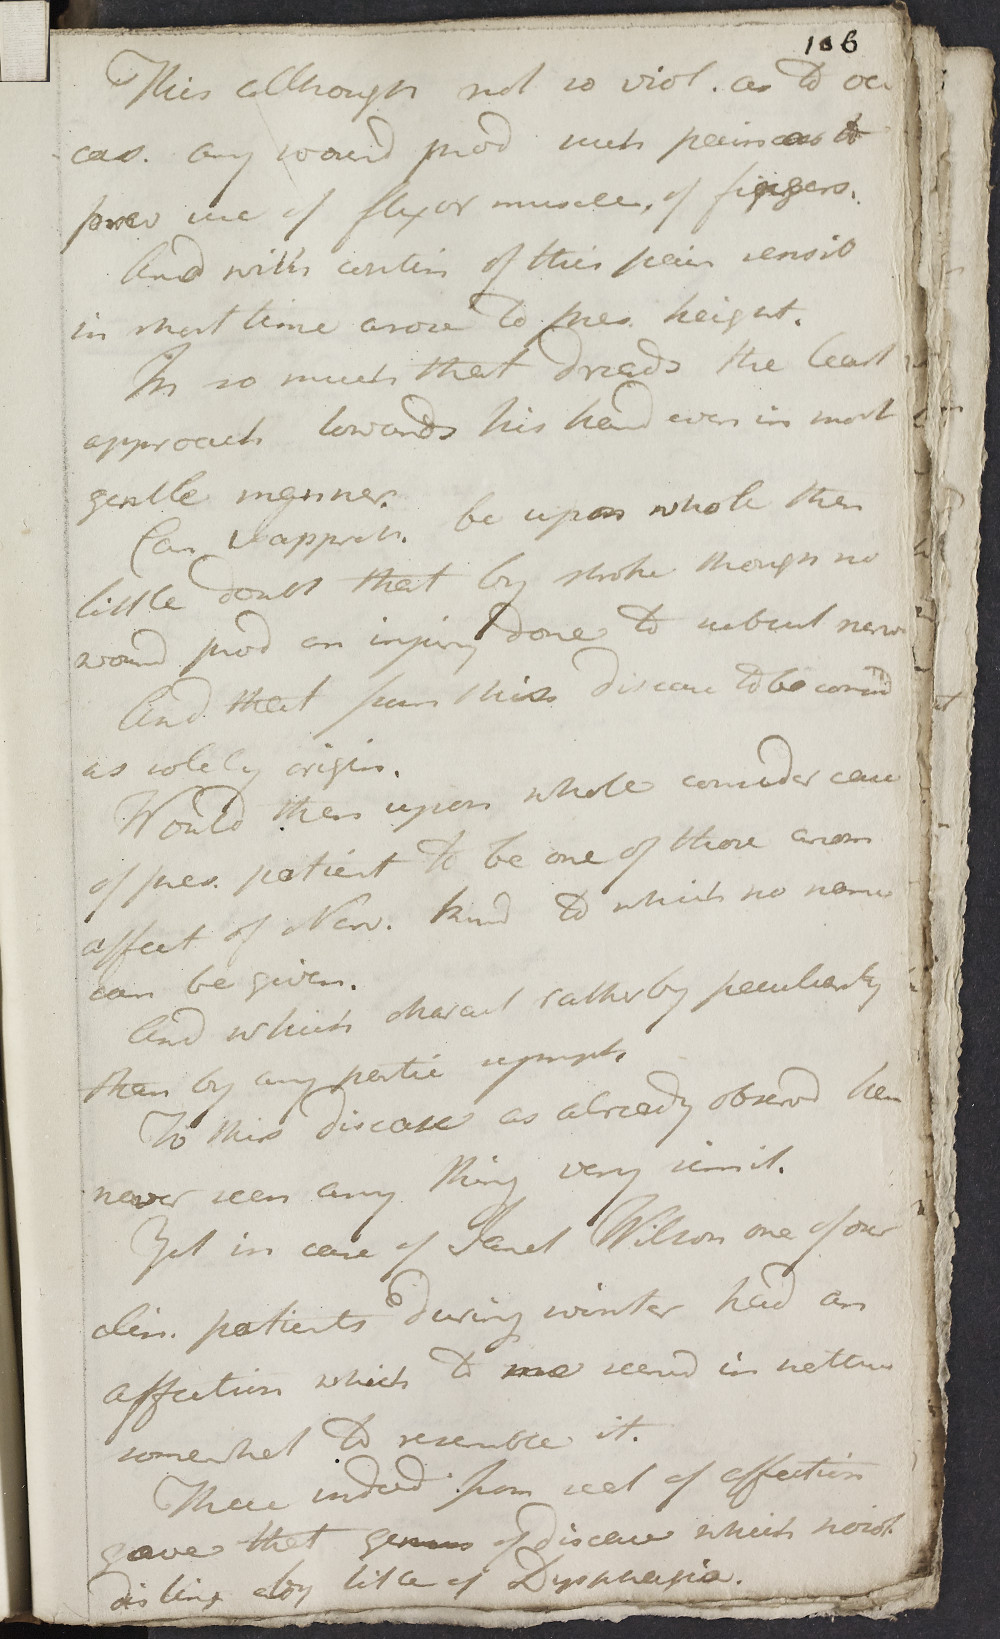 106
This although not so viol. as to oc
cas. any wound prod such pain as to
prev use of flexor muscles, of fingers.
And with contin of this pain sensib
in short time arose to pres. height.
In so much that dreads the least
approach towards his hand even in most
gentle manner.
Can I apprech. be upon whole then
little doubt that by stroke though no
wound prod an injury done to subcut nerv
And that from this disease to be consid
as solely origin.
Would then upon whole consider case
of pres. patient to be one of those anom
affect of Nerv. kind to which no name
can be given.
And which charact rather by peculiarity
than by any partic sympt.
To this disease as already observd have
never seen any thing very simil.
Yet in case of Janet Wilson one of our
clin. patients during winter had an
affection which to me seemd in nature
somewhat to resemble it.
There indeed from seat of affection
gave that genus of disease which nosol.
disting by title of Dysphagia.